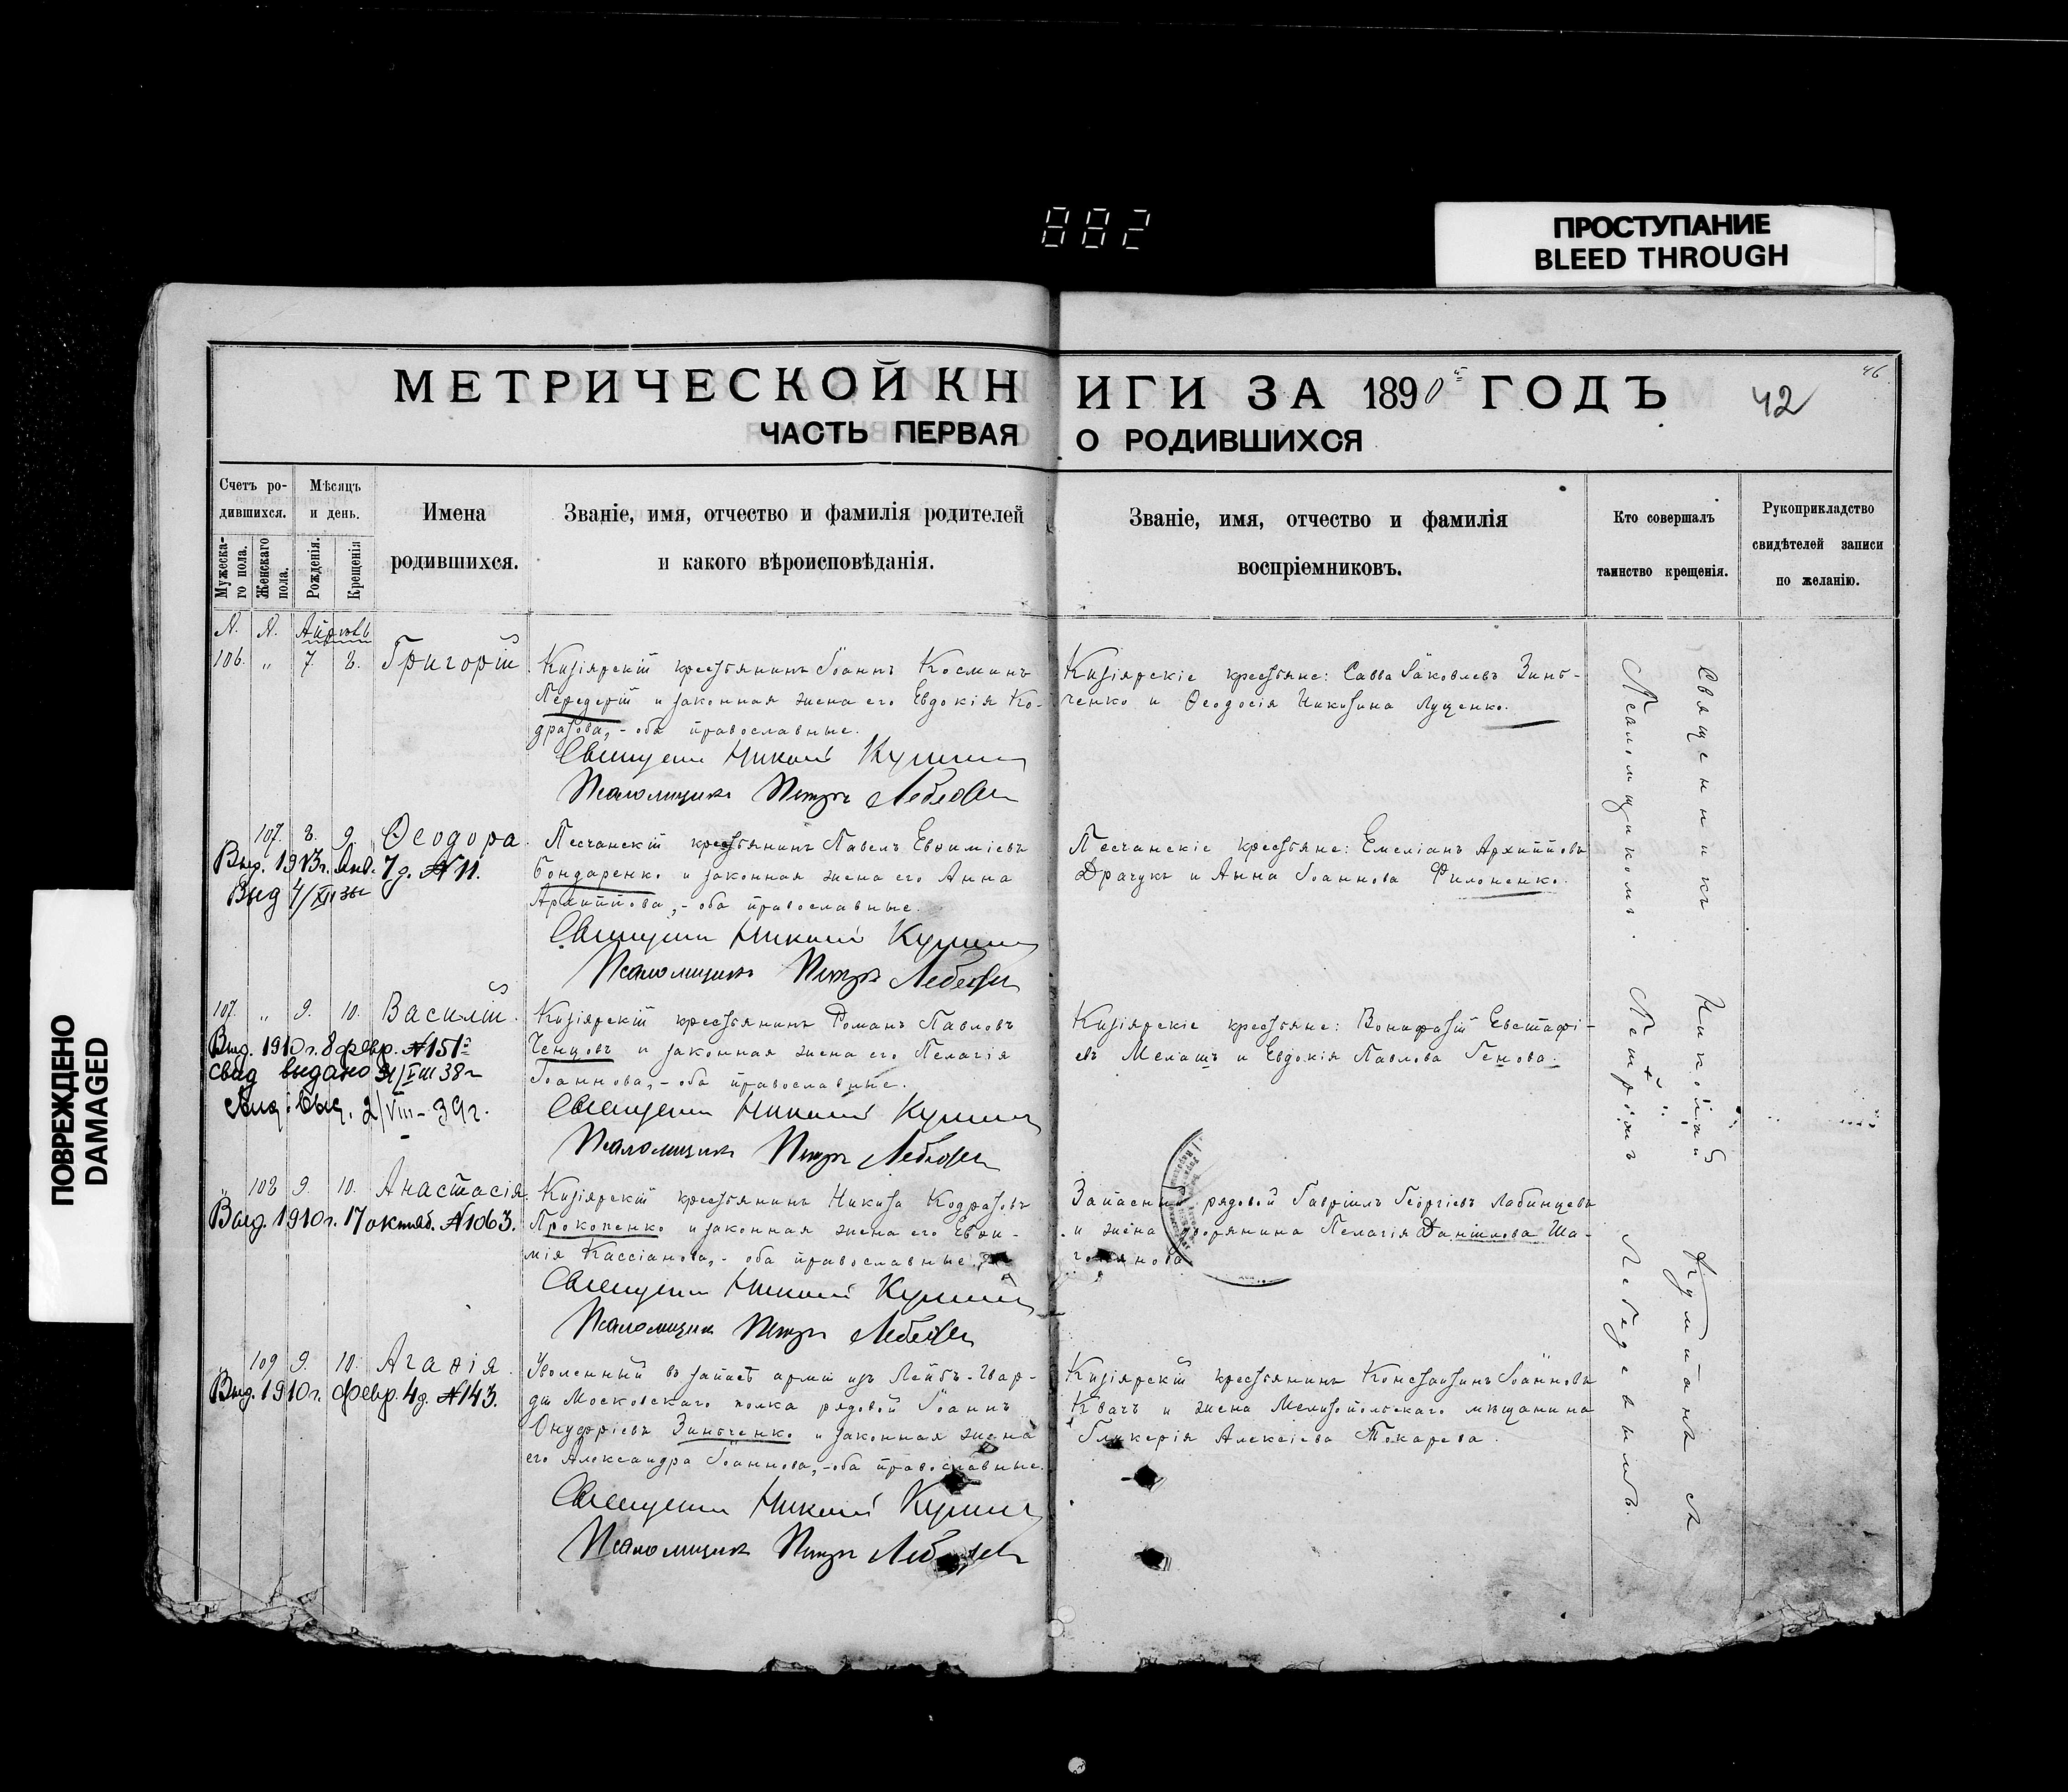 882
ПРОСТУПАНИЕ
BLEED THROUGH
ПОВРЕЖДЕНО
DAMAGED
МЕТРИЧЕСКОЙ КНИГИ ЗА 1890й ГОДЪ
42
46
ЧАСТЬ ПЕРВАЯ О РОДИВШИХСЯ
Счетъ ро-
дившихся.
Мужеска-
го пола.
Женскаго
пола.
Мѣсяцъ
и день.
Рожденія.
Крещенія
Имена
родившихся.
Званіе, имя, отчество и фамилія родителей
и какого вѣроисповѣданія.
Званіе, имя, отчество и фамилія
воспріемниковъ.
Кто совершалъ
таинство крещенія.
Рукоприкладство
свидѣтелей записи
по желанію.
Апрѣль
106. „ 7. 8. Григорій
Кизіярскій крестьянинъ Іоаннъ Косминъ
Передерій и законная жена его Евдокія Ко-
дратова,- оба православные.
Священникъ Николай
Псаломщикъ Петръ Лебедевъ
Кизіярскіе крестьяне: Савва Іаковлевъ Зинь-
ченко и Ѳеодосія Никитина Луценко.
107. 8. 9. Ѳеодора
Выд. 1913г. Янв. 7 д. №11.
Выд 4/XII 38г
Песчанскій крестьянинъ Павелъ Евѳиміевъ
Бондаренко и законная жена его Анна
Архиппова,- оба православные.
Священникъ Николай
Псаломщикъ Петръ Лебедевъ
Песчанскіе крестьяне: Емеліанъ Архипповъ
Драчукъ и Анна Іоаннова Филоненко.
107. „ 9. 10. Василій.
Выд. 1910г. 8 февр. №151
свид выдано 31/VIII 38г
выд. 2/VIII-39г.
Кизіярскій крестьянинъ Романъ Павловъ
Ченцовъ и законная жена его Пелагія
Іоаннова,- оба православные.
Священникъ Николай
Псаломщикъ Петръ Лебедевъ
Кизіярскіе крестьяне: Вонифатій Евстафі-
евъ Мелашъ и Евдокія Павлова Генова.
„ 108 9. 10. Анастасія.
Выд. 1910г. 17 октяб. №1063.
Кизіярскій крестьянинъ Никита Кодратовъ
Прокопенко и законная жена его Евѳи-
мія Кассіанова,- оба православные.
Священникъ Николай
Псаломщикъ Петръ Лебедевъ
Запасный рядовой Гавріилъ Георгіевъ Лабинцевъ
и жена дворянина Пелагія Даніилова Ша-
„ 109 9. 10. Агаѳія.
Выд. 1910г. февр. 4 д. №143.
Уволенный въ запасъ арміи изъ Лейбъ-Гвар-
діи Московскаго полка рядовой Іоаннъ
Онуфріевъ Зинченко и законная жена
его Александра Іоаннова,-оба православные.
Священникъ Николай
Псаломщикъ Петръ Лебедевъ
Кизіярскій крестьянинъ Константинъ Іоанновъ
Квачъ и жена Мелитопольскаго мѣщанина
Гликерія Алексіева Токарева.
Священникъ Николай
Псаломщикомъ Петромъ Лебедевымъ.